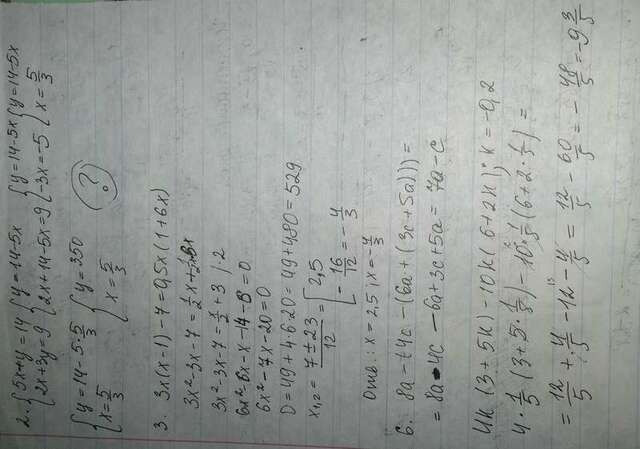 2. { 5x+y=14 { y=14-5x { y=14-5x { y=14-5x
2x+3y=9 { 2x+14-5x=9 { -3x=-5 { x=5/3
{ y=14-5·5/3 { y=350 (?)
x=5/3 { x=5/3
3. 3x(x-1)-7=0,5x(1+6x)
3x²-3x-7=1/2x+
3x²-3x-7=x/2+3 | 2
6x²-6x-x-14-6=0
6x²-7x-20=0
D=49+4·6·20=49+480=529
x₁,₂=7±23/12=[2,5
[-16/12=-4/3
Отв: x=2,5; x=-4/3
6. 8a-(4c-(6a+(3c+5a)))=
=8a-4c-6a+3c+5a=7a-c
4k(3+5k)-10k(6+2k); k=-0,2
4·1/5(3+5·1/5)-10·1/5(6+2·1/5)=
=12/5+4/5-12-4/5=12/5-60/5=-48/5=-9 3/5